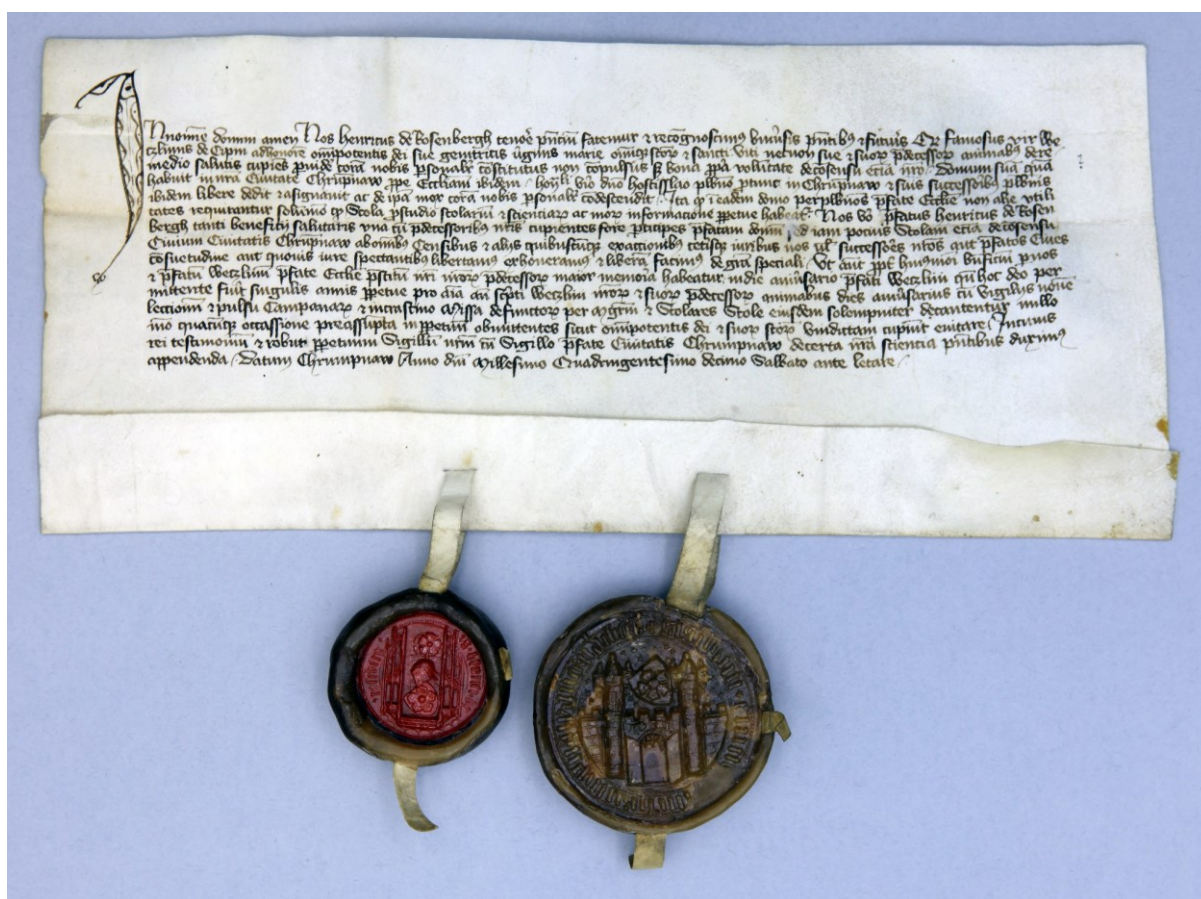 In nomine domini amen Nos Henricus de Rosenbergh tenore pñciu fatemur & recognoscimus univsis pñtibus & futuris Qr famosus vir We
czlinus de ad honore omipotentis dei sue genitricis virginis marie omniuqz sctor & sancti viti necnon sue & suor pdecessor animabus de re
medio salutis cupies pvide cora nobis psonalr costitutus non copulsus sz bona ppa volutate de cosensu etia nro Domum sua qua
habuit in nra Civitate Chrumpnaw ppe Eccliam ibidem hoñli viro dno hostislao plbno ptunc in Chrumpnaw & suis successoribus plbnis
ibidem libere dedit & asignavit ac de ipa mox cora nobis psonalr codescendit Ita qz i eadem domo per plbnos pfate Ecclie non alie utili
tates requirantur solumo qz Scola p studio scolariu & scienciar ac mor informacione ppetue habeat Nos vo pfatus henricus de Rosen
bergh tanti beneficii salutaris una cu pdecessoribus nris cupientes fore pticipes pfatam domu iam pocius Scolam etia de cosensu
Civium Civitatis Chrumpnaw ab omibus Censibus & aliis quibuscuqz exactionibus ceterisqz iuribus nos vel successores nros aut pfatos Cives
cosuetudine aut quovis iure spectantibus libertamus exhoneramus & libera facimus de gra speciali Ut aut ppt huiusmoi bnficiu pnos
& pfatu Weczlinu pfate Ecclie pscitu nri nror pdecessor maior memoria habeatur in die anivsario pfati Weczlini qu hoc deo per
mittente fiut singulis annis ppetue pro aia an scpti Weczlini nror & suor pdecessor animabus dies anivsarius cu vigiliis noue
leccionu & pulsu Campanar & in crastino Missa defunctor per Mgrm & Scolares Scole eiusdem solempniter decantentur nullo
mo quacuqz occassione preassupta in ppetuu obmittentes sicut omipotentis dei & suor sctor vindictam cupiut evitare In cuius
rei testimoniu & robur ppetuum Sigillu nrm cu Sigillo pfate Civitatis Chrumpnaw de certa nra sciencia pñtibus duximus
appendenda Datum Chrumpnaw Anno dni Millesimo Quadringentesimo decimo Sabbato ante letare